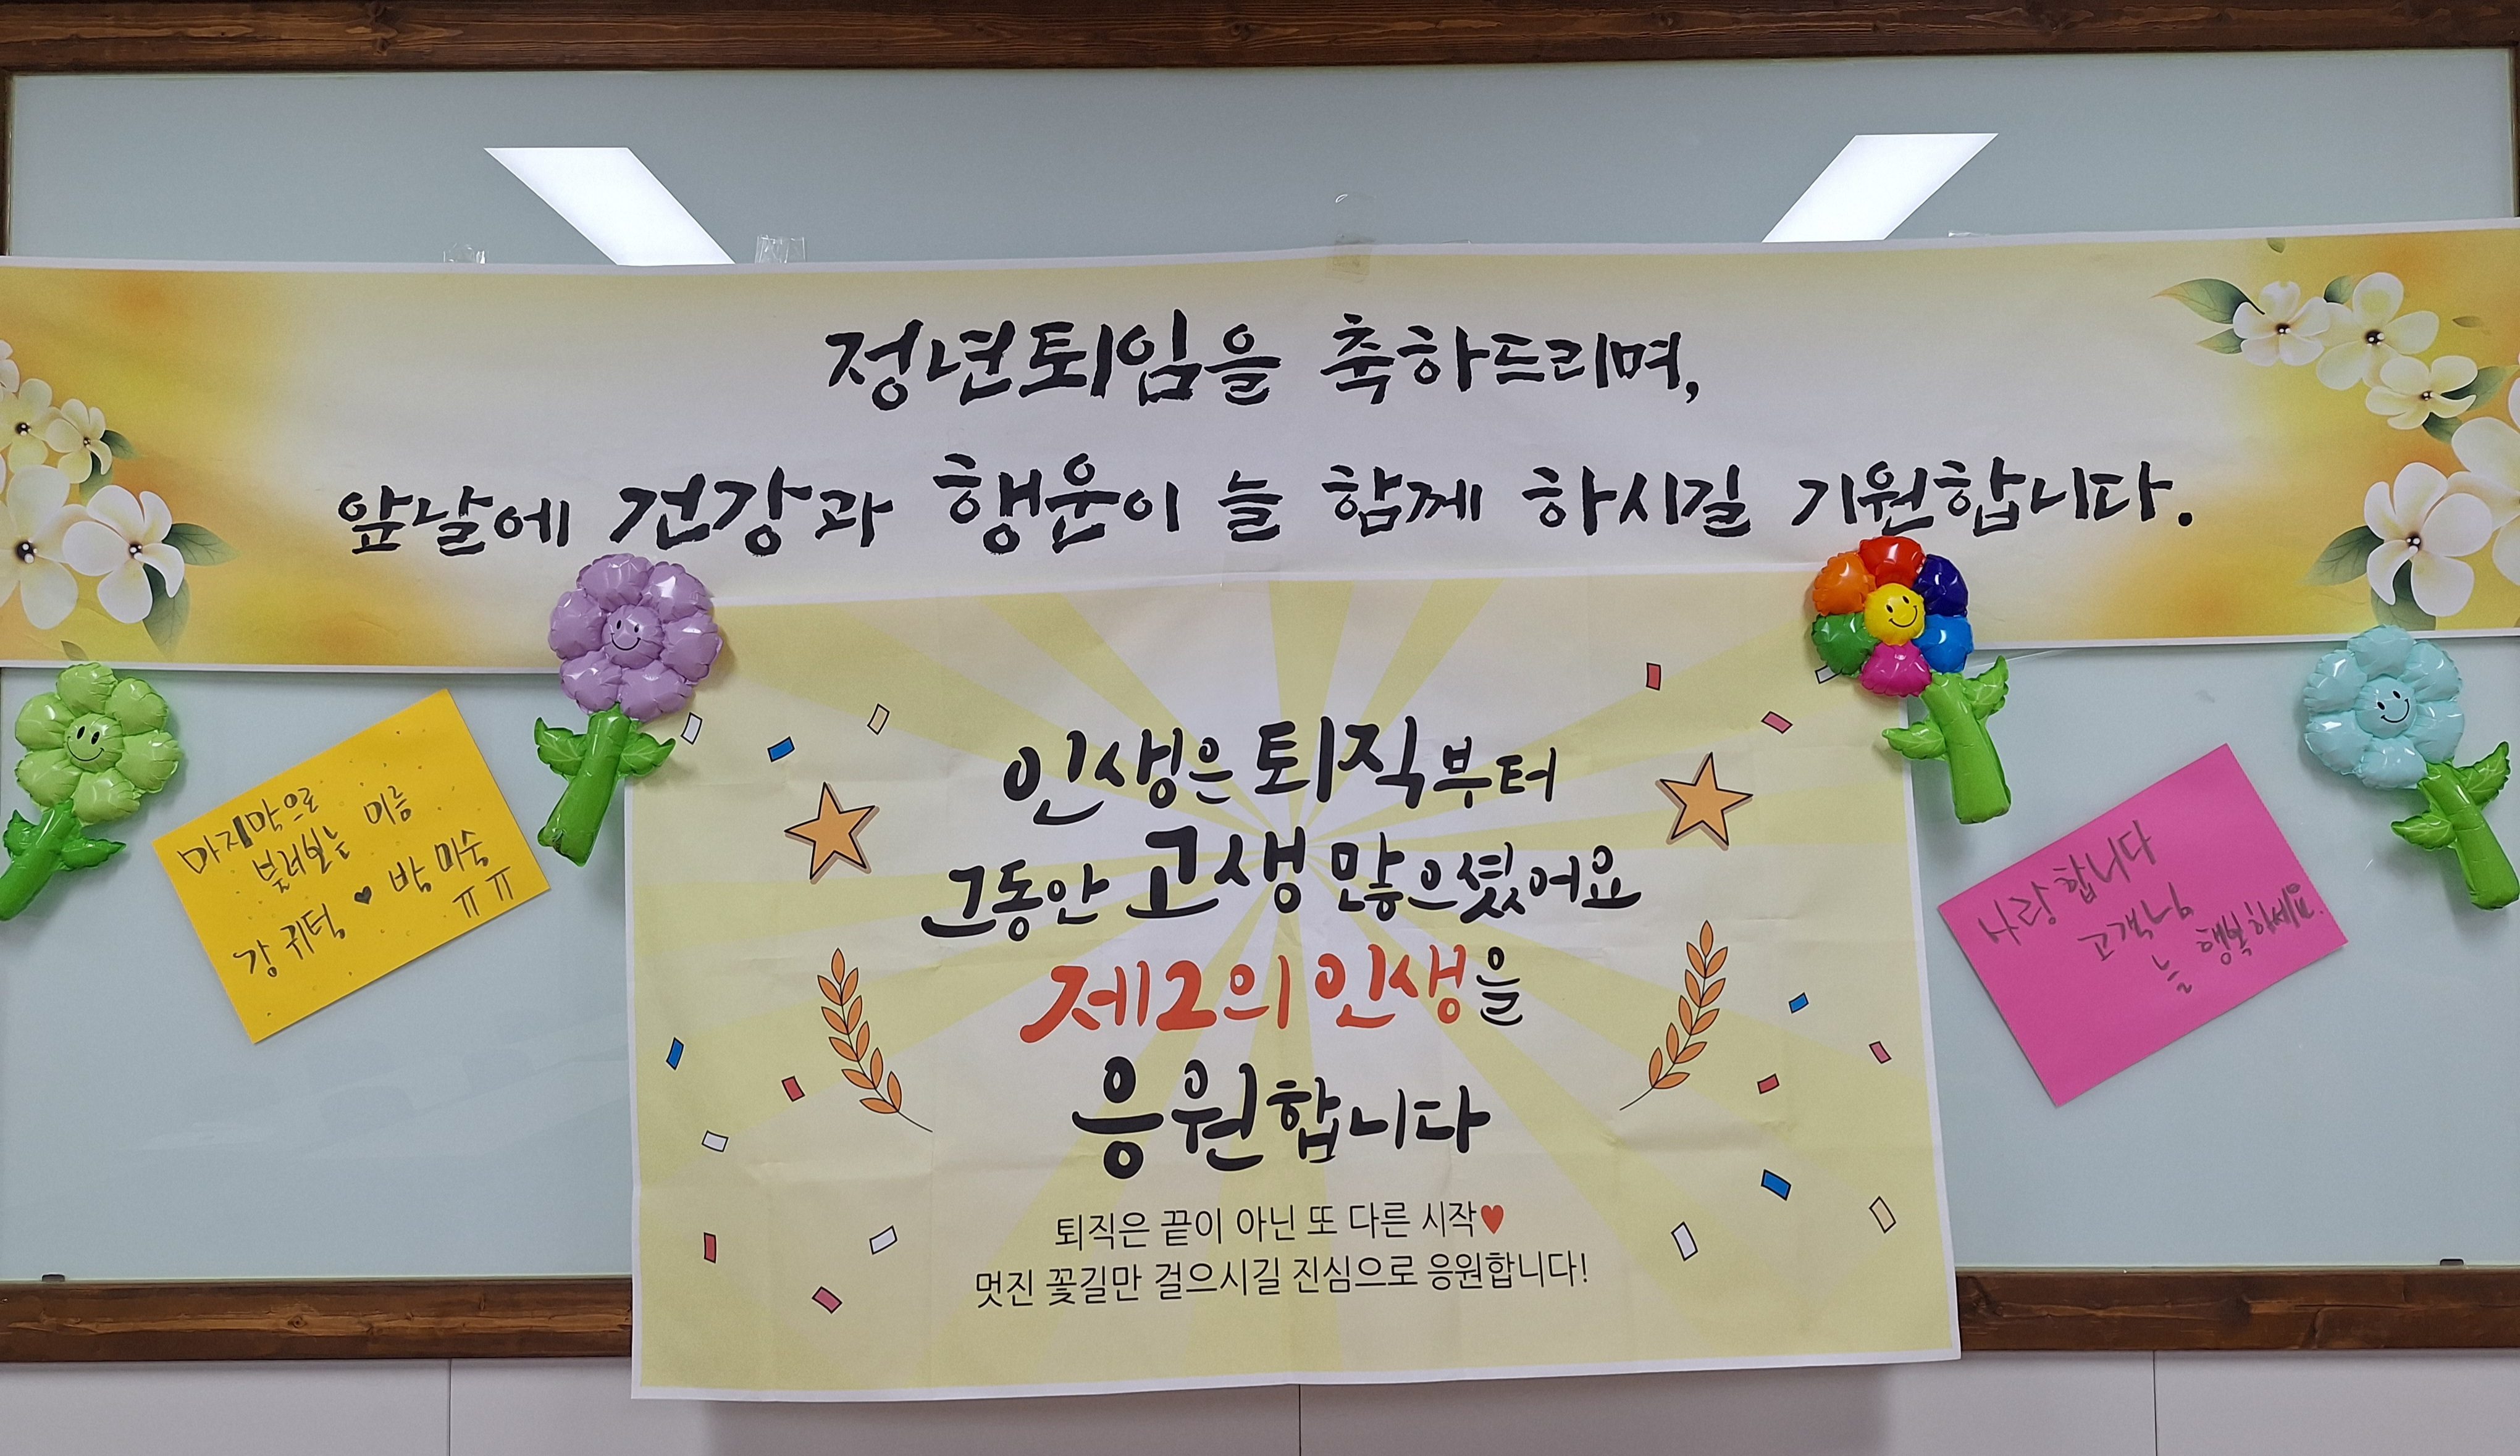 정년퇴임을 축하드리며,
앞날에 건강과 행운이 늘 함께 하시길 기원합니다.
인생은 퇴직부터
그동안 고생 많으셨어요
제2의 인생을
응원합니다
퇴직은 끝이 아닌 또 다른 시작♥
멋진 꽃길만 걸으시길 진심으로 응원합니다!
마지막으로
불러보는 이름
강 귀덕 ♥ 박 미숙
ㅠㅠ
사랑합니다
고객님
늘 행복하세요